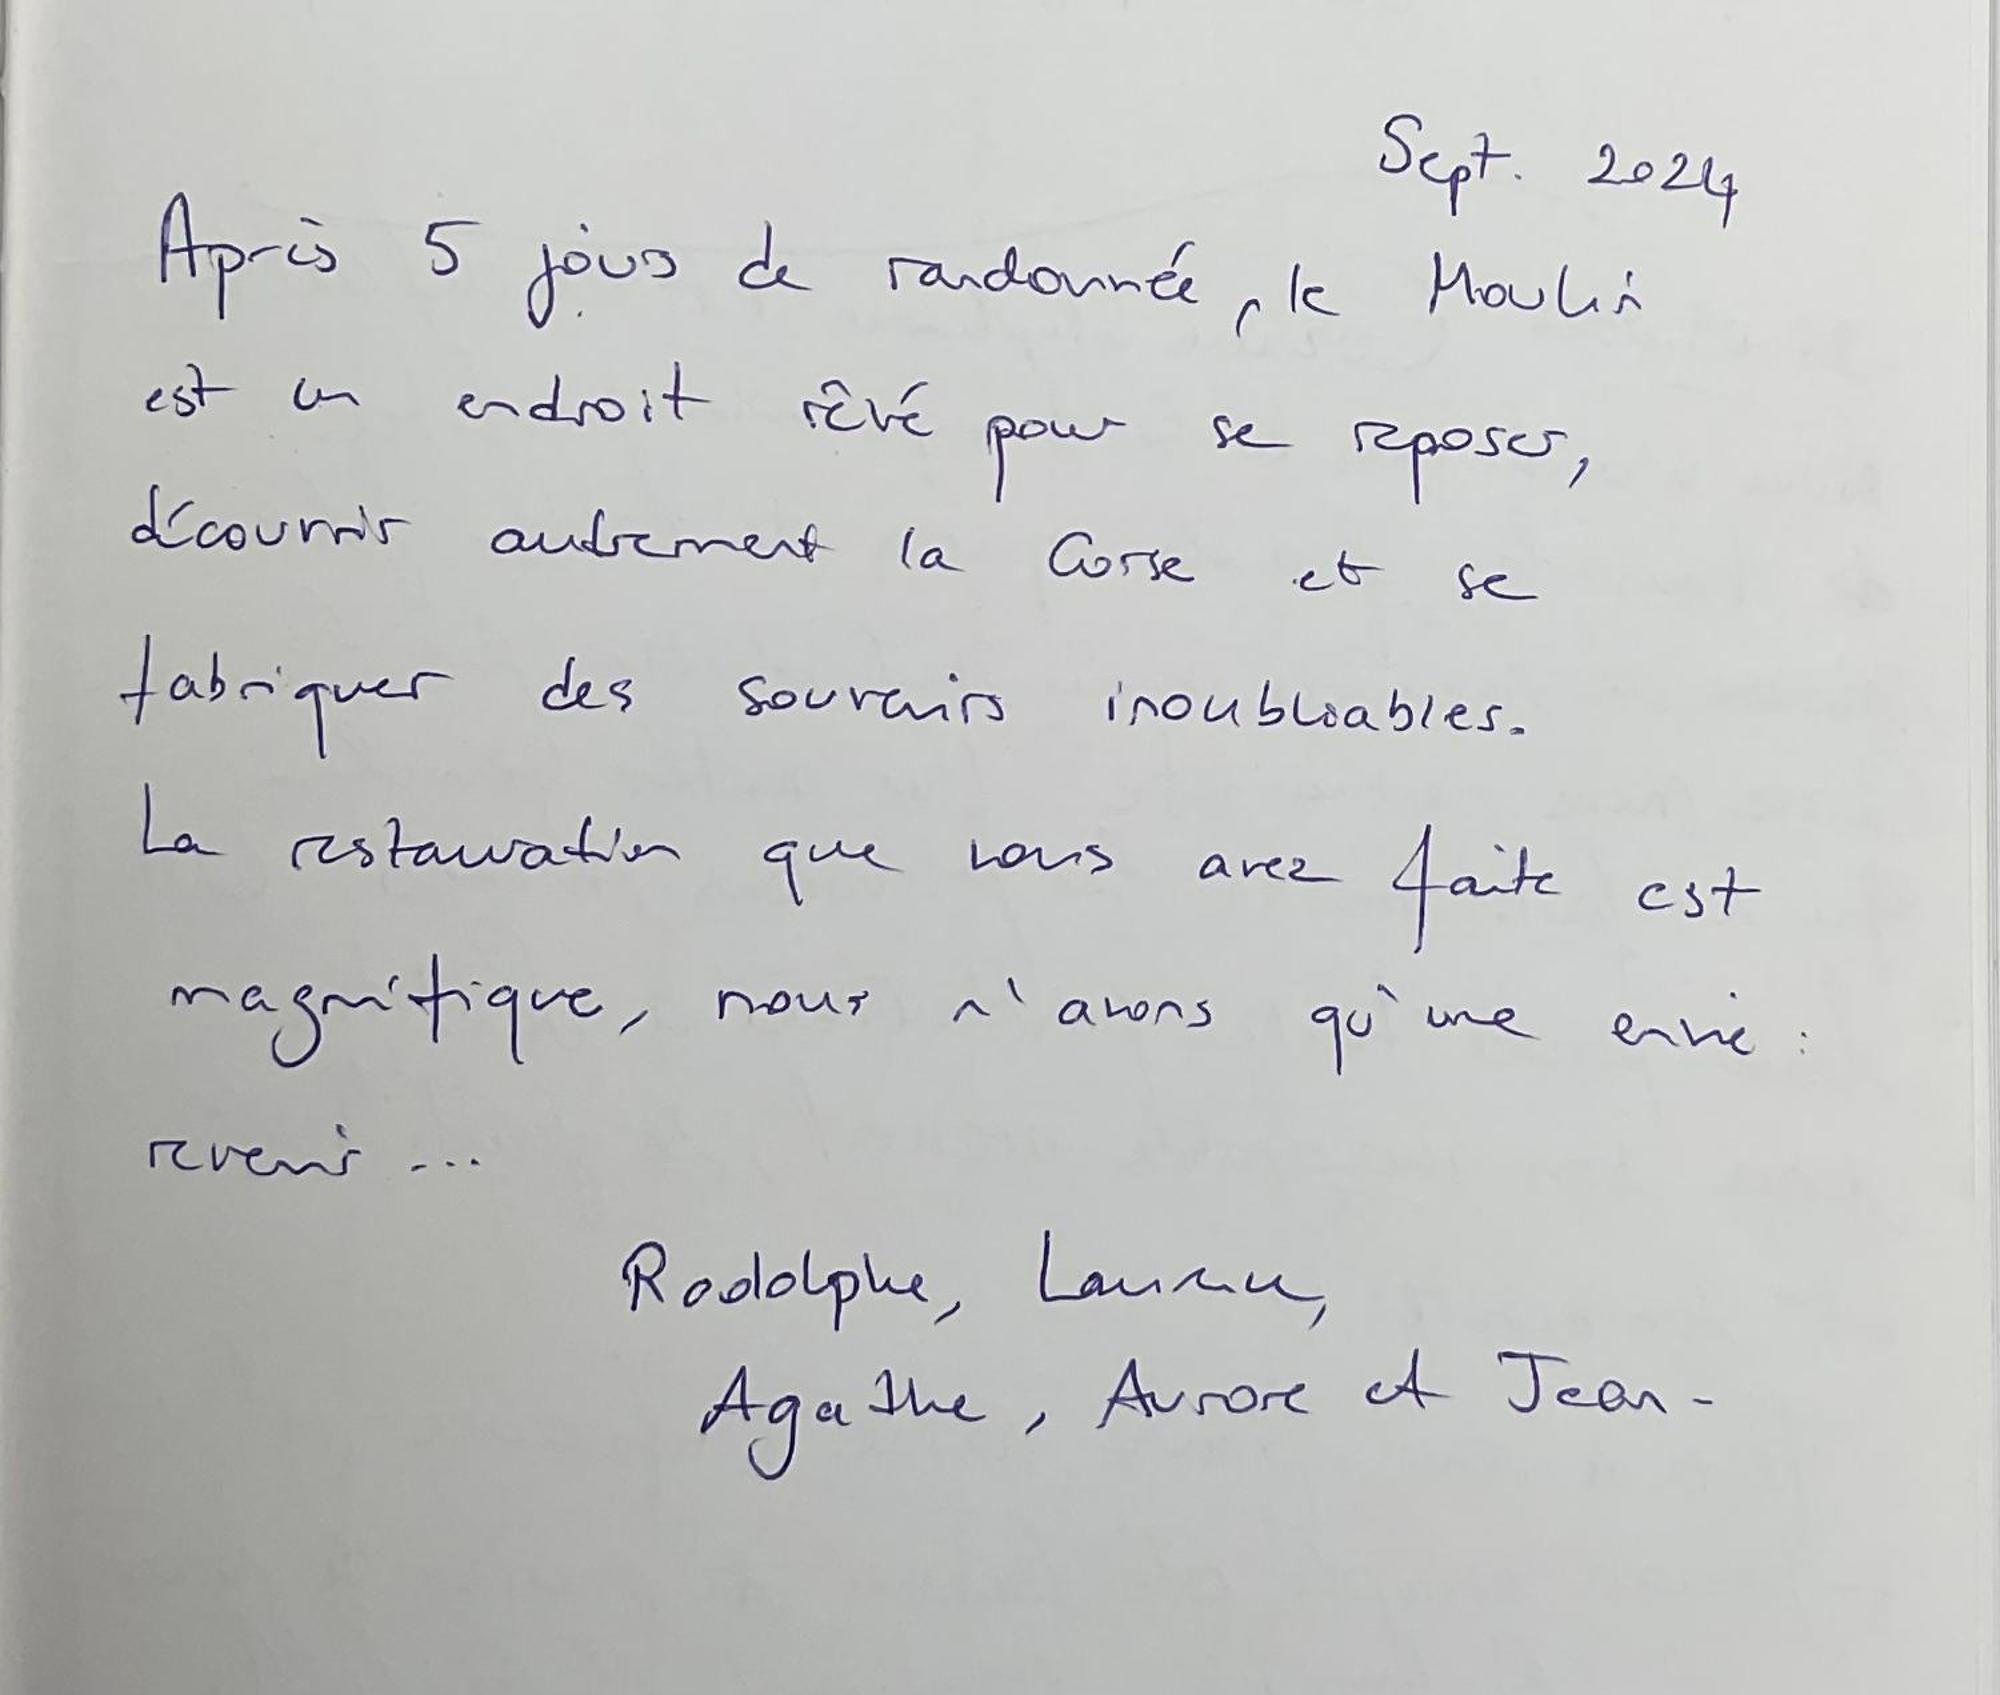 Sept. 2024
Après 5 jours de randonnée, le Moulin
est un endroit rêvé pour se reposer,
découvrir autrement la Corse et se
fabriquer des souvenirs inoubliables.
La restauration que vous avez faite est
magnifique, nous n'avons qu'une envie :
revenir ...
Rodolphe, Laurence,
Agathe, Aurore et Jean-